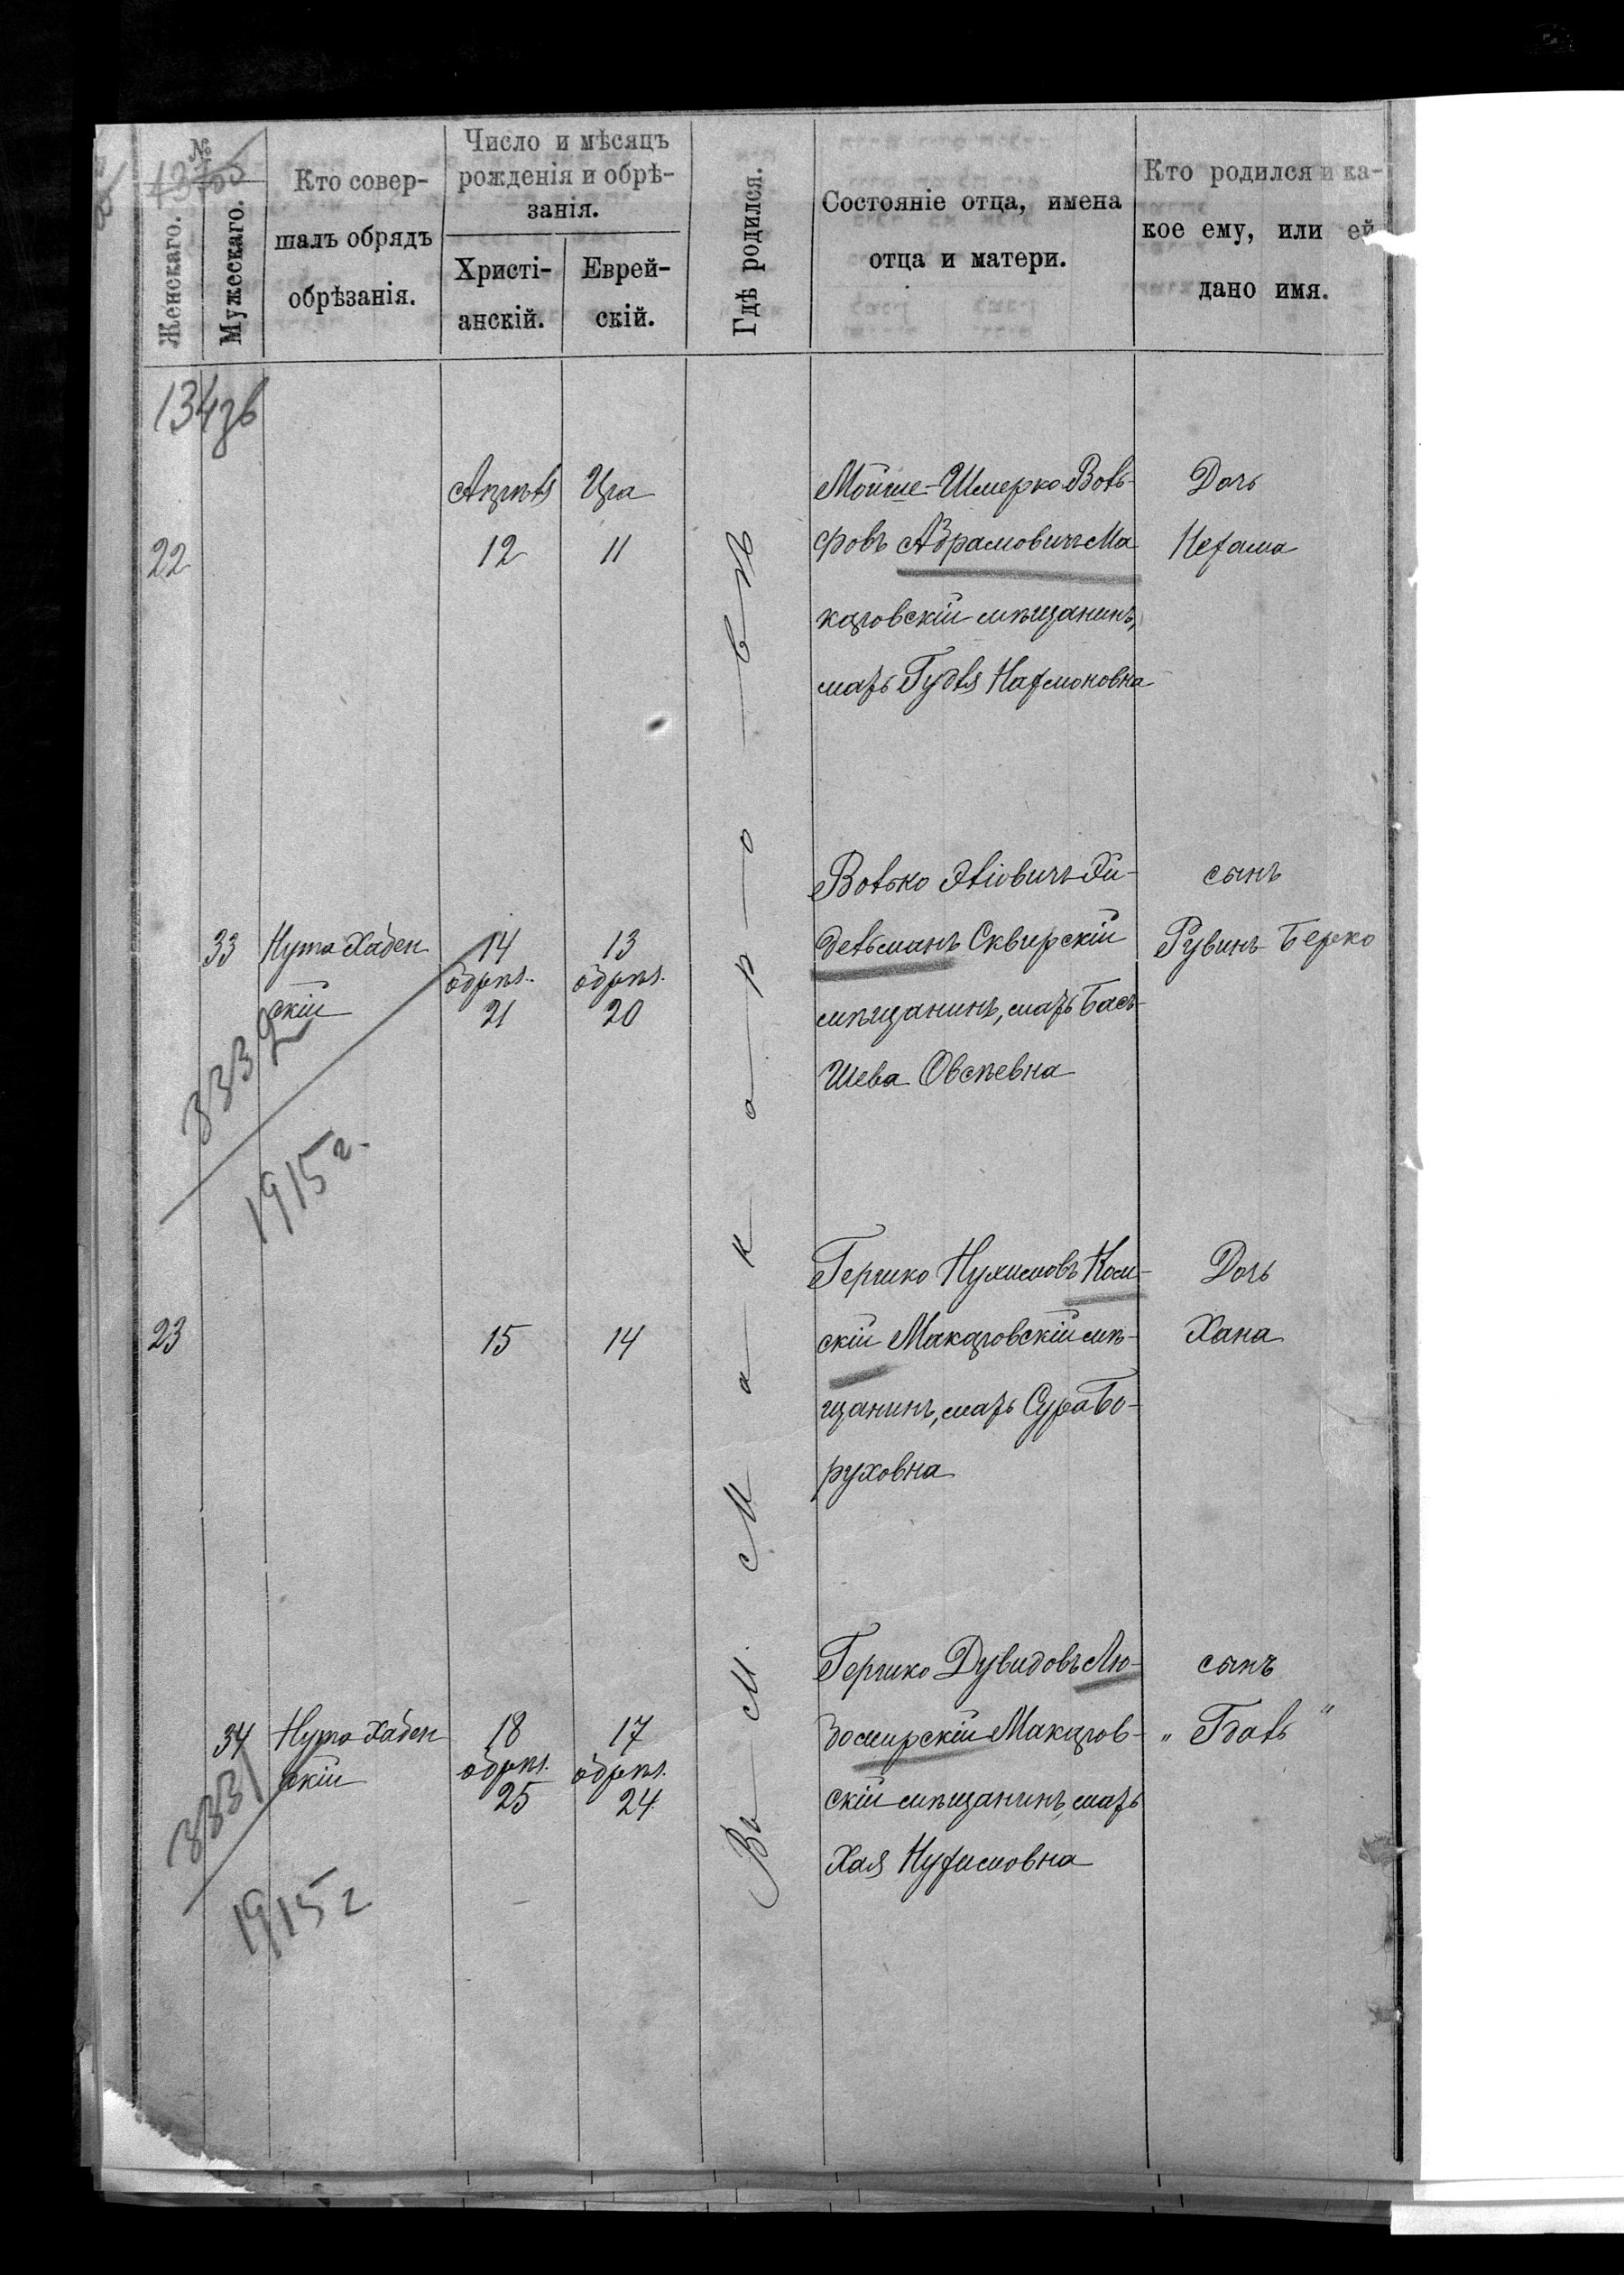 №
Женскаго.
Мужескаго.
Кто совер-
шалъ обрядъ
обрѣзанія.
Число и мѣсяцъ
рожденія и обрѣ-
занія.
Христі-
анскій.
Еврей-
скій.
Гдѣ родился.
Состояніе отца, имена
отца и матери.
Кто родился и ка-
кое ему, или ей
дано имя.
134
Въ М. Макаровѣ
22
Апрѣль
12
11
Мойше-Шмерко Воль-
фовъ Абрамовичъ Ма
каровскій мѣщанинъ,
мать Гудля Нахмоновна
Дочь
Нехама
33
Нута Хабен
скій
14
обрѣз.
21
13
обрѣз.
20
Волько Эліовичъ Эй-
дельманъ Сквирскій
мѣщанинъ, мать Бась-
Шева Овсѣевна
сынъ
Рувинъ-Берко
3332
1915 г.
23
15
14
Гершко Нухимовъ
скій Макаровскій мѣ-
щанинъ, мать Сура Бо-
руховна
Дочь
Хана
34
Нута Хабен
скій
18
обрѣз.
25
17
обрѣз.
24
Гершко Дувидовъ Лю-
бомирскій Макаров-
скій мѣщанинъ, мать
Хая Нухимовна
сынъ
3331
1915 г